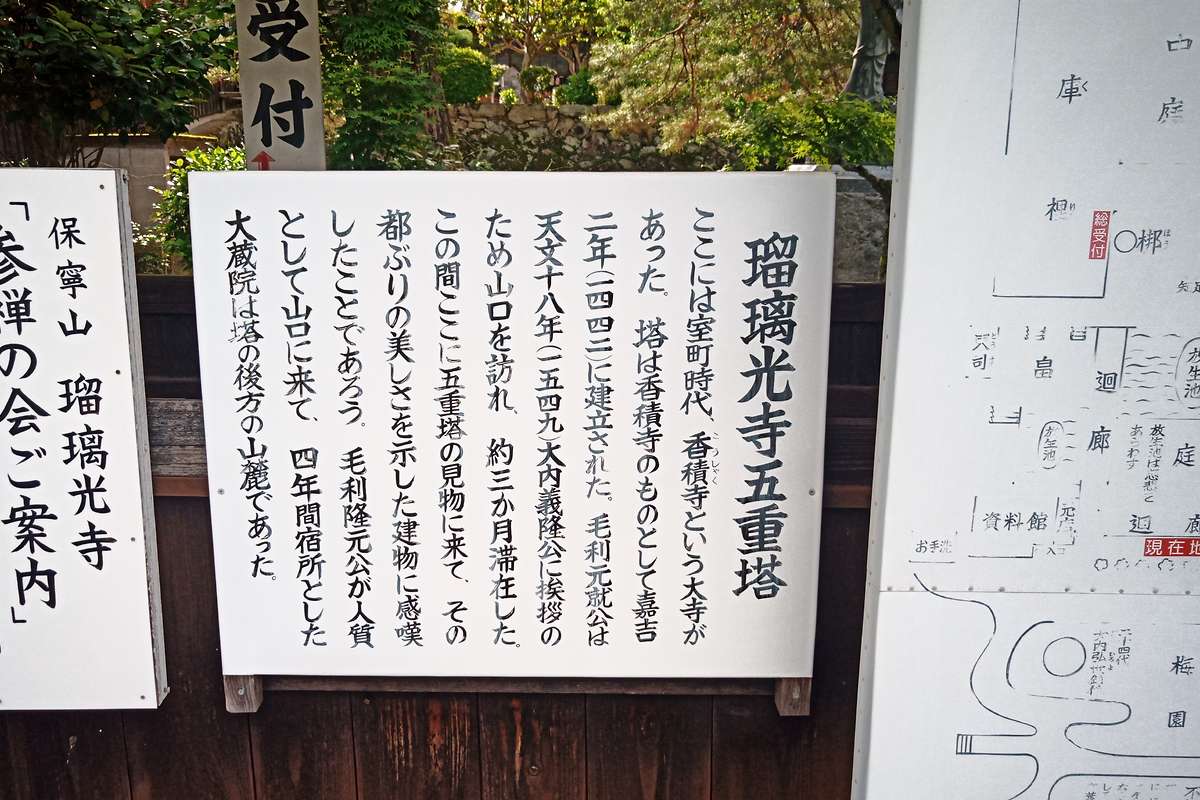 受付
瑠璃光寺五重塔
ここには室町時代、香積寺という大寺が
こうしゃく
あった。塔は香積寺のものとして嘉吉
二年(一四四二)に建立された。毛利元就公は
天文十八年(一五四九)大内義隆公に挨拶の
ため山口を訪れ、約三か月滞在した。
この間ここに五重塔の見物に来て、その
都ぶりの美しさを示した建物に感嘆
したことであろう。毛利隆元公が人質
として山口に来て、四年間宿所とした
大蔵院は塔の後方の山麓であった。
保寧山 瑠璃光寺
「参禅の会ご案内」
中庭
庫
総受付
梆
放生池
庭
廊
廻
放生池は
資料館
廻
廊
お手洗
現在地
梅園